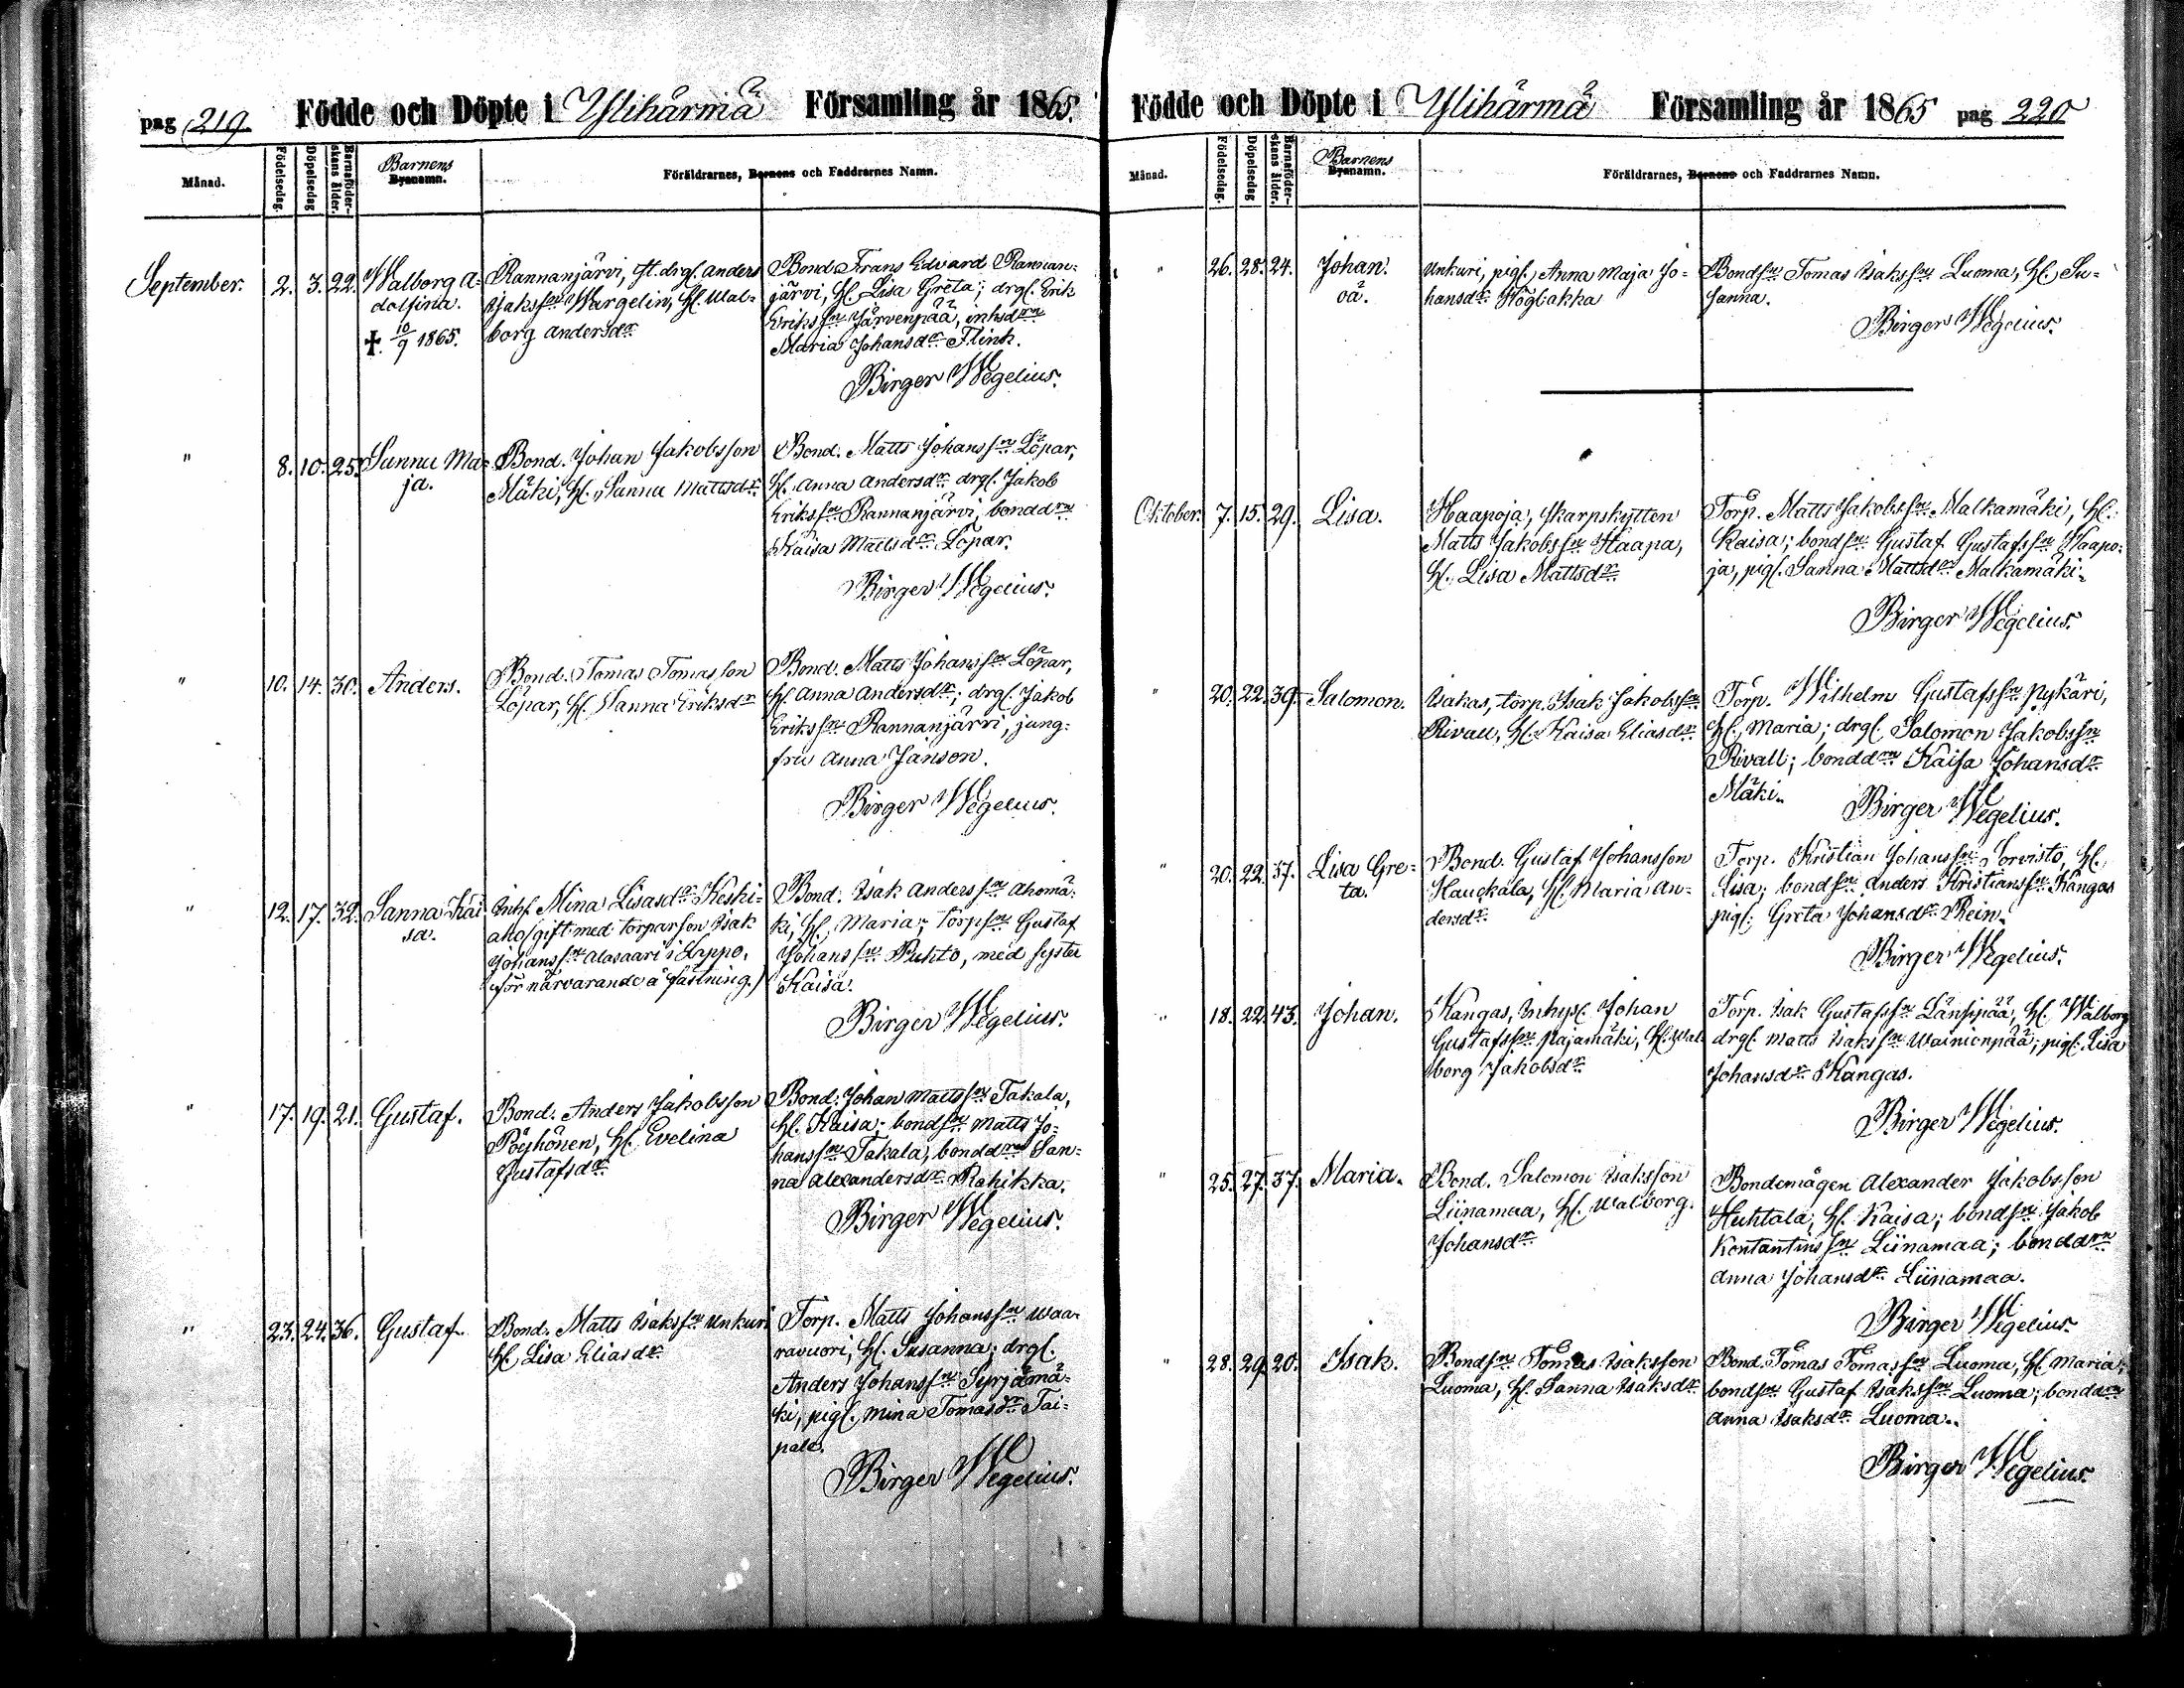 pag 219. Födde och Döpte i Ylihärmä Församling år 1865.
Månad. Födelsedag. Döpelsedag Barnaföderskans ålder. Barnens Byanamn. Föräldrarnes, Barnens och Faddrarnes Namn.
September. 2. 3. 22. Walborg A-
dolfina.
✝. 10/9 1865.
Rannanjärvi, gt. drgl. Anders
Isakssn Wargelin, H. Wal-
borg Andersdr
Bond. Frans Edvard Rannan-
järvi, H. Lisa Greta; drgl. Erik
Erikssn Järvenpää, inhsdrn
Maria Johansdr Flink.
Birger Wegelius.
" 8. 10. 25. Sanna Ma-
ja.
Bond. Johan Jakobsson
Mäki, H. Sanna Mattsdr
Bond. Matts Johanssn Löpar,
H. Anna Andersdr drgl. Jakob
Erikssn Rannanjärvi, bonddrn
Kaisa Mattsdr Löpar.
Birger Wegelius.
" 10. 14. 30. Anders.
Bond. Tomas Tomasson
Löpar, H. Sanna Eriksdr
Bond. Matts Johanssn Löpar,
H. Anna Andersdr; drgl. Jakob
Erikssn Rannanjärvi, jung-
fru Anna Janson.
Birger Wegelius.
" 12. 17. 32. Sanna Kai
sa.
Inhs. Mina Lisasdr Keski-
aho /gift med torparson Isak
Johanssn Alasaari i Lappo,
för närvarande å fästning./
Bond. Isak Anderssn Ahomä-
ki, H. Maria; torpsn Gustaf
Johanssn Puhto, med syster
Kaisa.
Birger Wegelius.
" 17. 19. 21. Gustaf.
Bond. Anders Jakobsson
Pöyhönen, H. Evelina
Gustafsdr
Bond. Johan Mattssn Takala,
H. Kaisa; bondsn Matts Jo-
hanssn Takala, bonddrn San-
na Alexandersdr Rahikka.
Birger Wegelius.
" 23. 24. 36. Gustaf.
Bond. Matts Isakssn Unkuri
H. Lisa Eliasdr
Torp. Matts Johanssn Waa-
ravuori, H. Susanna; drgl.
Anders Johanssn Syrjämä-
ki, pigl. Mina Tomasdr Tai-
pale.
Birger Wegelius.
Födde och Döpte i Ylihärmä Församling år 1865 pag 220
Månad. Födelsedag. Döpelsedag Barnaföderskans ålder. Barnens Byanamn. Föräldrarnes, Barnens och Faddrarnes Namn.
" 26. 28. 24. Johan.
oä.
Unkuri, pigl. Anna Maja Jo-
hansdr Högbakka
Bondsn Tomas Isakssn Luoma, H. Su-
sanna.
Birger Wegelius.
Oktober. 7. 15. 29. Lisa.
Haapoja, skarpskytten
Matts Jakobssn Haapa,
H. Lisa Mattsdr
Torp. Matts Jakobssn Malkamäki, H.
Kaisa; bondsn Gustaf Gustafssn Haapo-
ja, pigl. Sanna Mattsdr Malkamäki.
Birger Wegelius.
" 20. 22. 39. Salomon.
Isakas, torp. Isak Jakobssn
Rivall, H. Kaisa Eliasdr
Torp. Wilhelm Gustafssn Pykäri,
H. Maria; drgl. Salomon Jakobssn
Rivall; bonddrn Kaisa Johansdr
Mäki.
Birger Wegelius.
" 20. 22. 37. Lisa Gre-
ta.
Bond. Gustaf Johansson
Hauckala, H. Maria An-
dersdr
Torp. Kristian Johanssn Sorvisto, H.
Lisa; bondsn Anders Kristianssn Kangas
pigl. Greta Johansdr Rein.
Birger Wegelius.
" 18. 22. 43. Johan.
Kangas, Inhys. Johan
Gustafssn Pajamäki, H. Wal-
borg Jakobsdr
Torp. Isak Gustafssn Länsipää, H. Walborg
drgl. Matts Isakssn Wainionpää; pigl. Lisa
Johansdr Kangas.
Birger Wegelius.
" 25. 27. 37. Maria.
Bond. Salomon Isaksson
Liinamaa, H. Walborg
Johansdr
Bondemågen Alexander Jakobsson
Huhtala, H. Kaisa; bondsn Jakob
Kontantinssn Liinamaa; bonddrn
Anna Johansdr Liinamaa.
Birger Wegelius.
" 28. 29. 20. Isak.
Bondsn Tomas Isaksson
Luoma, H. Sanna Isaksdr
Bond. Tomas Tomassn Luoma, H. Maria;
bondsn Gustaf Isakssn Luoma; bonddrn
Anna Isaksdr Luoma.
Birger Wegelius.